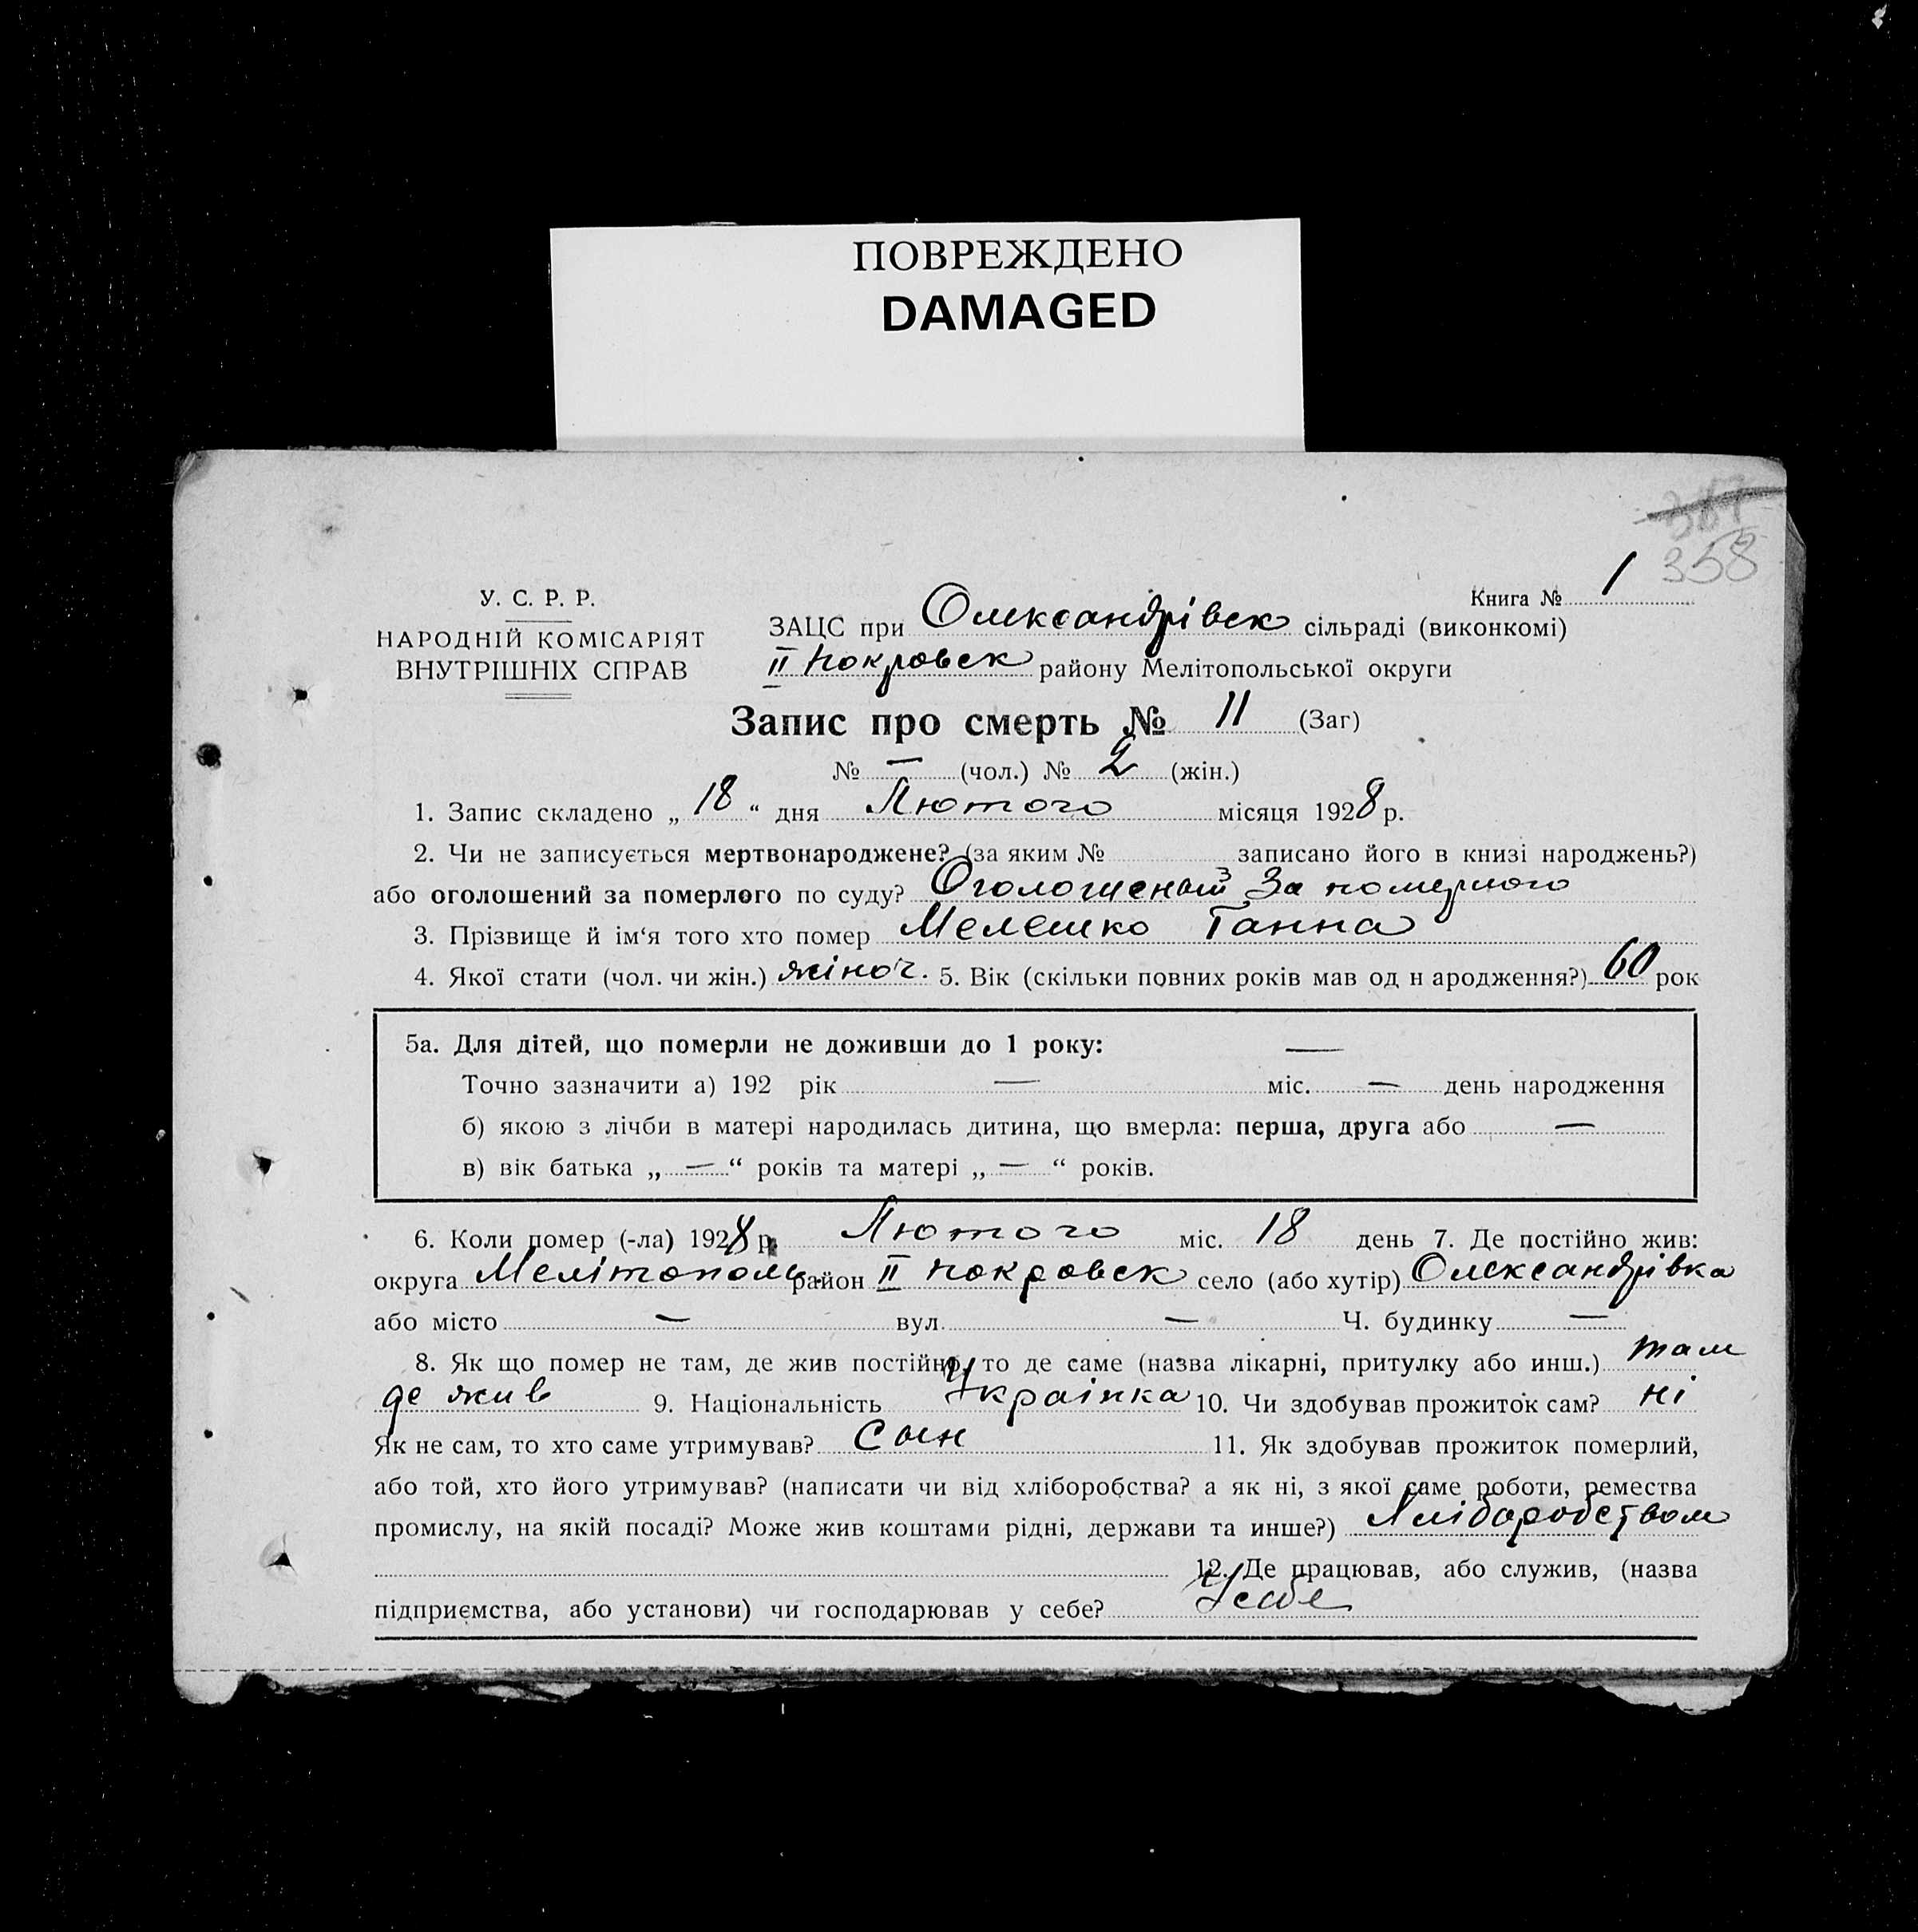 ПОВРЕЖДЕНО
DAMAGED
358
Книга № 1
У. С. Р. Р.
НАРОДНІЙ КОМІСАРІЯТ
ВНУТРІШНІХ СПРАВ
ЗАЦС при Олександрівск сільраді (виконкомі)
II Покровск району Мелітопольської округи
Запис про смерть № 11 (Заг)
№ — (чол.) № 2 (жін.)
1. Запис складено „ 18 “ дня Лютого місяця 1928 р.
2. Чи не записується мертвонароджене? (за яким № записано його в книзі народжень?)
або оголошений за померлого по суду? За померлого
3. Прізвище й ім‘я того хто помер Мелешко Ганна
4. Якої стати (чол. чи жін.) жіноч. 5. Вік (скільки повних років мав од н ародження?) 60 рок
5а. Для дітей, що померли не доживши до 1 року: —
Точно зазначити а) 192 рік — міс. — день народження
б) якою з лічби в матері народилась дитина, що вмерла: перша, друга або —
в) вік батька „ — “ років та матері „ — “ років.
6. Коли помер (-ла) 1928 р. Лютого міс. 18 день 7. Де постійно жив:
округа Мелітополь. район II Покровск село (або хутір) Олександрівка
або місто — вул. — Ч. будинку —
8. Як що помер не там, де жив постійно, то де саме (назва лікарні, притулку або инш.) там
де жив 9. Національність Українка 10. Чи здобував прожиток сам? ні
Як не сам, то хто саме утримував? Сын 11. Як здобував прожиток померлий,
або той, хто його утримував? (написати чи від хліборобства? а як ні, з якої саме роботи, ремества
промислу, на якій посаді? Може жив коштами рідні, держави та инше?) Хліборобством
12. Де працював, або служив, (назва
підприємства, або установи) чи господарював у себе? У себе